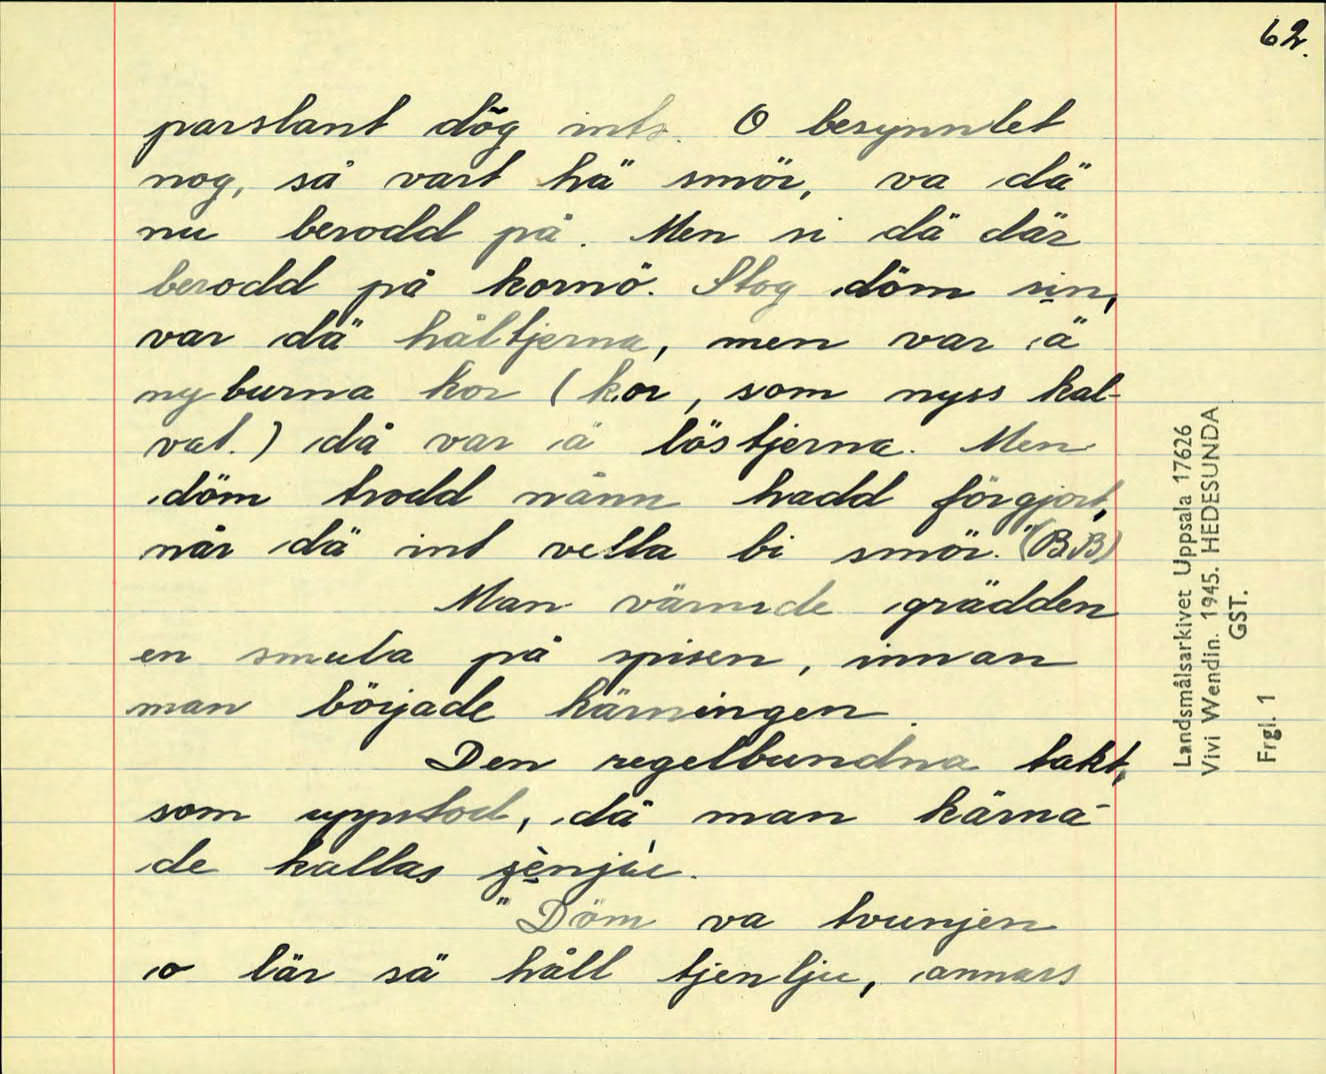 62.
parslant dög inte. O besynnlet
nog, så vart hä smör, va dä
nu berodd på. Men si dä där
berodd på kornö. Stog döm sin,
var dä håltjerna, men var ä
nyburna kor (kor, som nyss kal-
vat.) då var ä löstjerna. Men
döm trodd nånn hadd förgjort,
når dä int vella bi smör." (BB)
Man värmde grädden
en smula på spisen, innan
man började kärningen.
Den regelbundna takt,
som uppstod, då man kärna-
de kallas
"Döm va tvunjen
o lär sä håll tjenlju, annars
Landsmålsarkivet Uppsala 17626
Vivi Wendin. 1945. HEDESUNDA
GST.
Frgl. 1